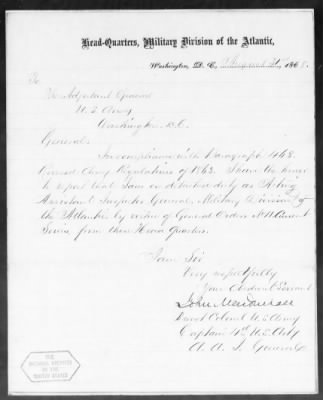 Head-Quarters, Military Division of the Atlantic,
Washington, D. C., August 31st 1868.
To
The Adjutant General
U. S. Army
Washington D.C.
General:
In compliance with Paragraph 468
Revised Army Regulations of 1863. I have the honor
to report that I am on detached duty as Acting
Assistant Inspector General, Military Division of
the Atlantic by virtue of General Order No 11 Current
Series from these Head Quarters.
I am Sir
Very respectfully
Your Obedient Servant
John Mendenhall
Brevet Colonel U.S. Army
Captain 4th U.S. Arty
A. A. I. General
THE
NATIONAL ARCHIVES
OF THE
UNITED STATES